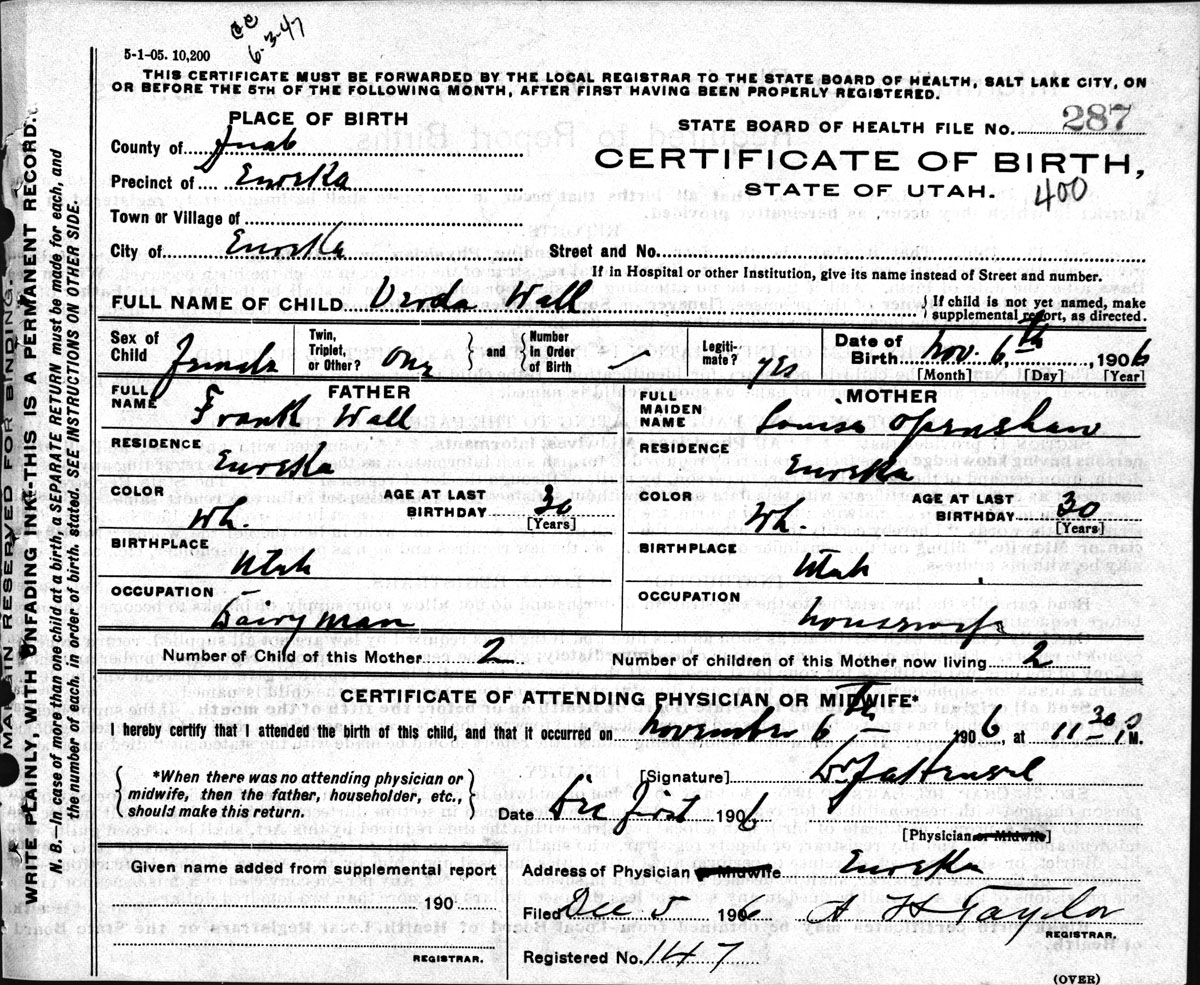 cc
6-3-47
5-1-05. 10,200
THIS CERTIFICATE MUST BE FORWARDED BY THE LOCAL REGISTRAR TO THE STATE BOARD OF HEALTH, SALT LAKE CITY, ON
OR BEFORE THE 5TH OF THE FOLLOWING MONTH, AFTER FIRST HAVING BEEN PROPERLY REGISTERED.
PLACE OF BIRTH
STATE BOARD OF HEALTH FILE NO. 287
County of Juab
CERTIFICATE OF BIRTH,
Precinct of Eureka
STATE OF UTAH. 400
Town or Village of
City of Eureka Street and No.
If in Hospital or other Institution, give its name instead of Street and number.
FULL NAME OF CHILD Verda Wall { If child is not yet named, make supplemental report, as directed.
Sex of Child Female Twin, Triplet, or Other? One } and { Number in Order of Birth - Legiti-mate? yes Date of Birth Nov. 6th, 1906
[Month] [Day] [Year]
FATHER
FULL NAME Frank Wall
RESIDENCE Eureka
COLOR Wh. AGE AT LAST BIRTHDAY 30
[Years]
BIRTHPLACE Utah
OCCUPATION Dairyman
MOTHER
FULL MAIDEN NAME Louisa
RESIDENCE Eureka
COLOR Wh. AGE AT LAST BIRTHDAY 30
[Years]
BIRTHPLACE Utah
OCCUPATION housewife
Number of Child of this Mother 2 Number of children of this Mother now living 2
CERTIFICATE OF ATTENDING PHYSICIAN OR MIDWIFE*
I hereby certify that I attended the birth of this child, and that it occurred on November 6th 1906, at 11-30 P M.
{ *When there was no attending physician or midwife, then the father, householder, etc., should make this return. }
[Signature]
Date Dec first 1906
[Physician or Midwife]
Given name added from supplemental report
190
REGISTRAR.
Address of Physician or Midwife Eureka
Filed Dec 5 1906 A H Taylor
REGISTRAR.
Registered No. 147
(OVER)
MARGIN RESERVED FOR BINDING.
WRITE PLAINLY, WITH UNFADING INK-THIS IS A PERMANENT RECORD.
N. B. In case of more than one child at a birth, a SEPARATE RETURN must be made for each, and
the number of each. in order of birth. stated. SEE INSTRUCTIONS ON OTHER SIDE.